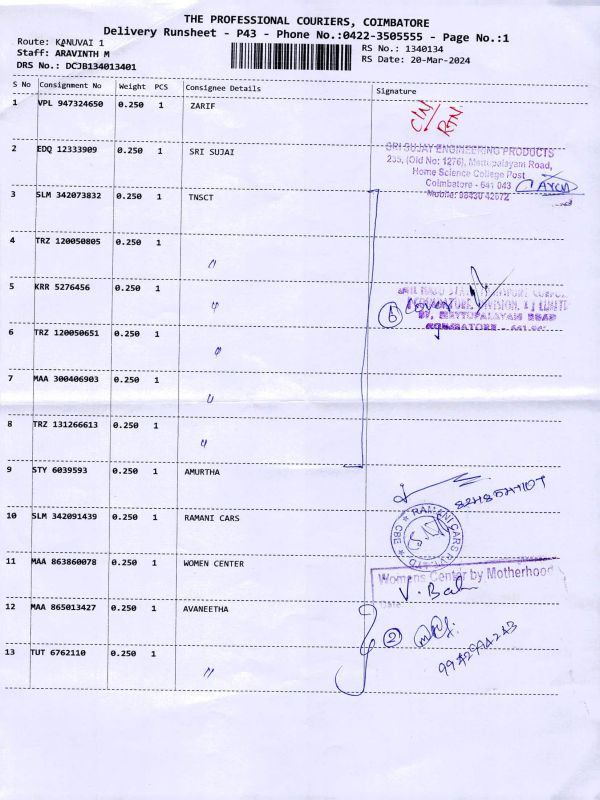 THE PROFESSIONAL COURIERS, COIMBATORE
Delivery Runsheet - P43 - Phone No.:0422-3505555 - Page No.:1
Route: KANUVAI 1
Staff: ARAVINTH M
DRS No.: DCJB134013401
RS No.: 1340134
RS Date: 20-Mar-2024
S No Consignment No Weight PCS Consignee Details Signature
1 VPL 947324650 0.250 1 ZARIF
2 EDQ 12333909 0.250 1 SRI SUJAI
SRI SUJAY ENGINEERING PRODUCTS
235, (Old No: 1276), Mettupalayam Road,
Home Science College Post
Coimbatore - 641 043
Mobile: 98430 42672
3 SLM 342073832 0.250 1 TNSCT
4 TRZ 120050805 0.250 1 "
5 KRR 5276456 0.250 1 "
6 Cover
METTUPALAYAM ROAD
COIMBATORE
6 TRZ 120050651 0.250 1 "
7 MAA 300406903 0.250 1 "
8 TRZ 131266613 0.250 1 "
9 STY 6039593 0.250 1 AMURTHA
10 SLM 342091439 0.250 1 RAMANI CARS
RAMANI CARS PVT LTD
CBE
11 MAA 863860078 0.250 1 WOMEN CENTER
Womens Center by Motherhood
V. Bal
Date
12 MAA 865013427 0.250 1 AVANEETHA
2
9942994243
13 TUT 6762110 0.250 1 "